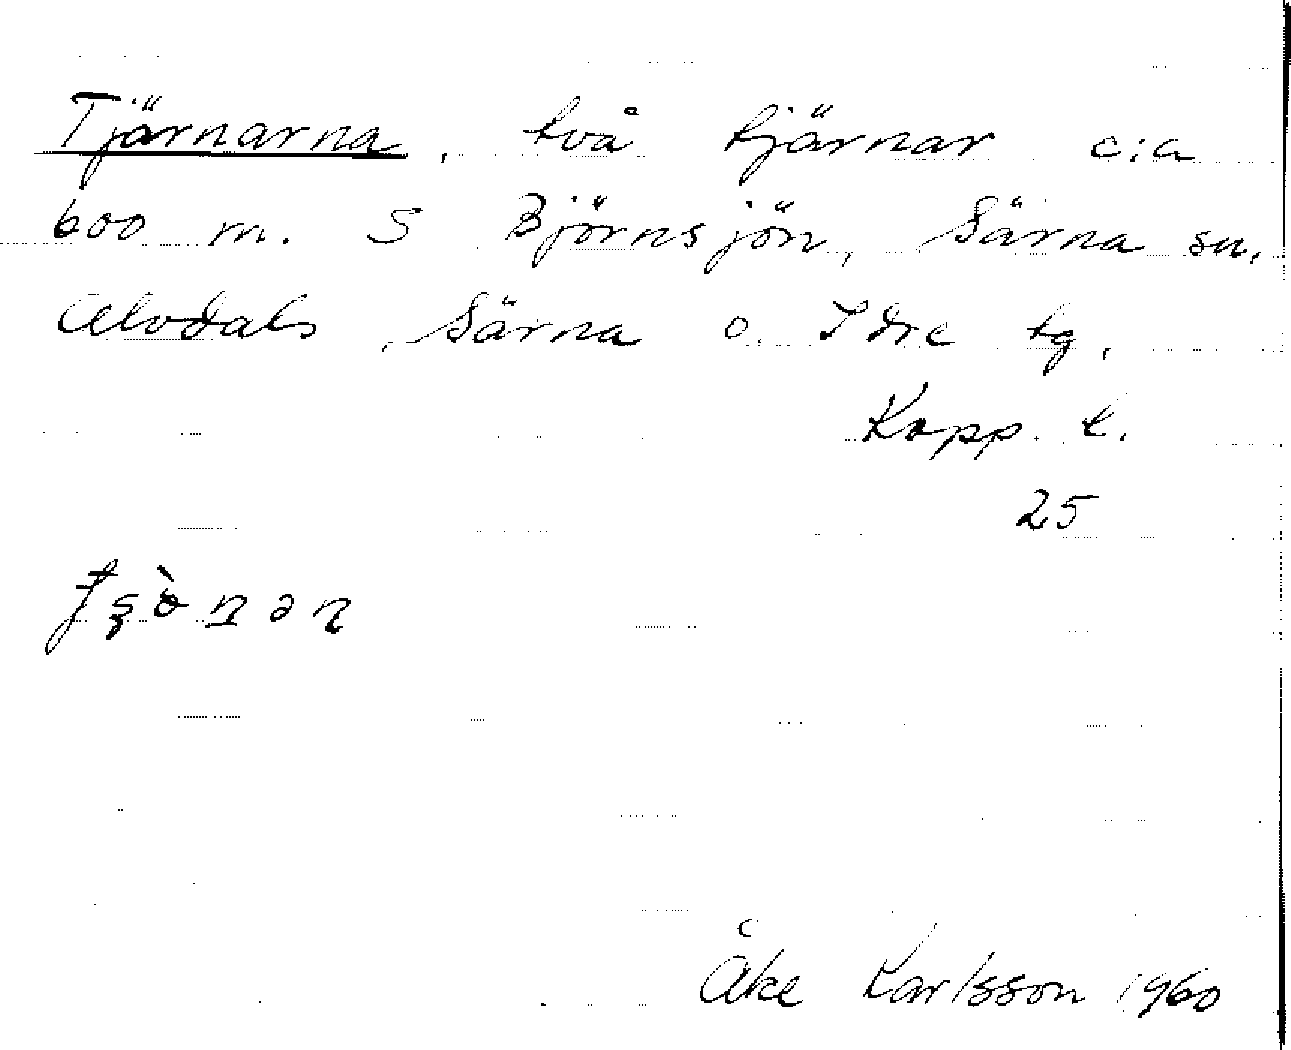 Tjärnarna, två tjärnar c:a
600 m. S Björnsjön, Särna sn.
Älvdals, Särna o. Idre tg,
Kopp. l.
25
Åke Karlsson 1960